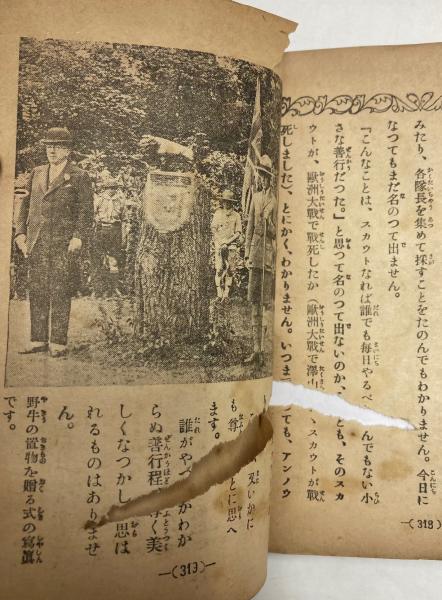 みたり、各隊長を集めて探すことをたのんでもわかりません。今日に
なつてもまだ名のつて出ません。
『こんなことは、スカウトなれば誰でも毎日やるべ んでもない小
さな善行だつた。』と思つて名のつて出ないのか、 とも、そのスカ
ウトが、歐洲大戰で戰死したか（歐洲大戰で澤山 スカウトが戰
死しました）、とにかく、わかりません。いつま ても、アンノウ
―(318)―
いかに
も尊 とに思へ
ます。
誰がやつ かわか
らぬ善行程 く美
しくなつかし 思は
れるものはありませ
ん。
野牛の置物を贈る式の寫眞
です。
―(319)―